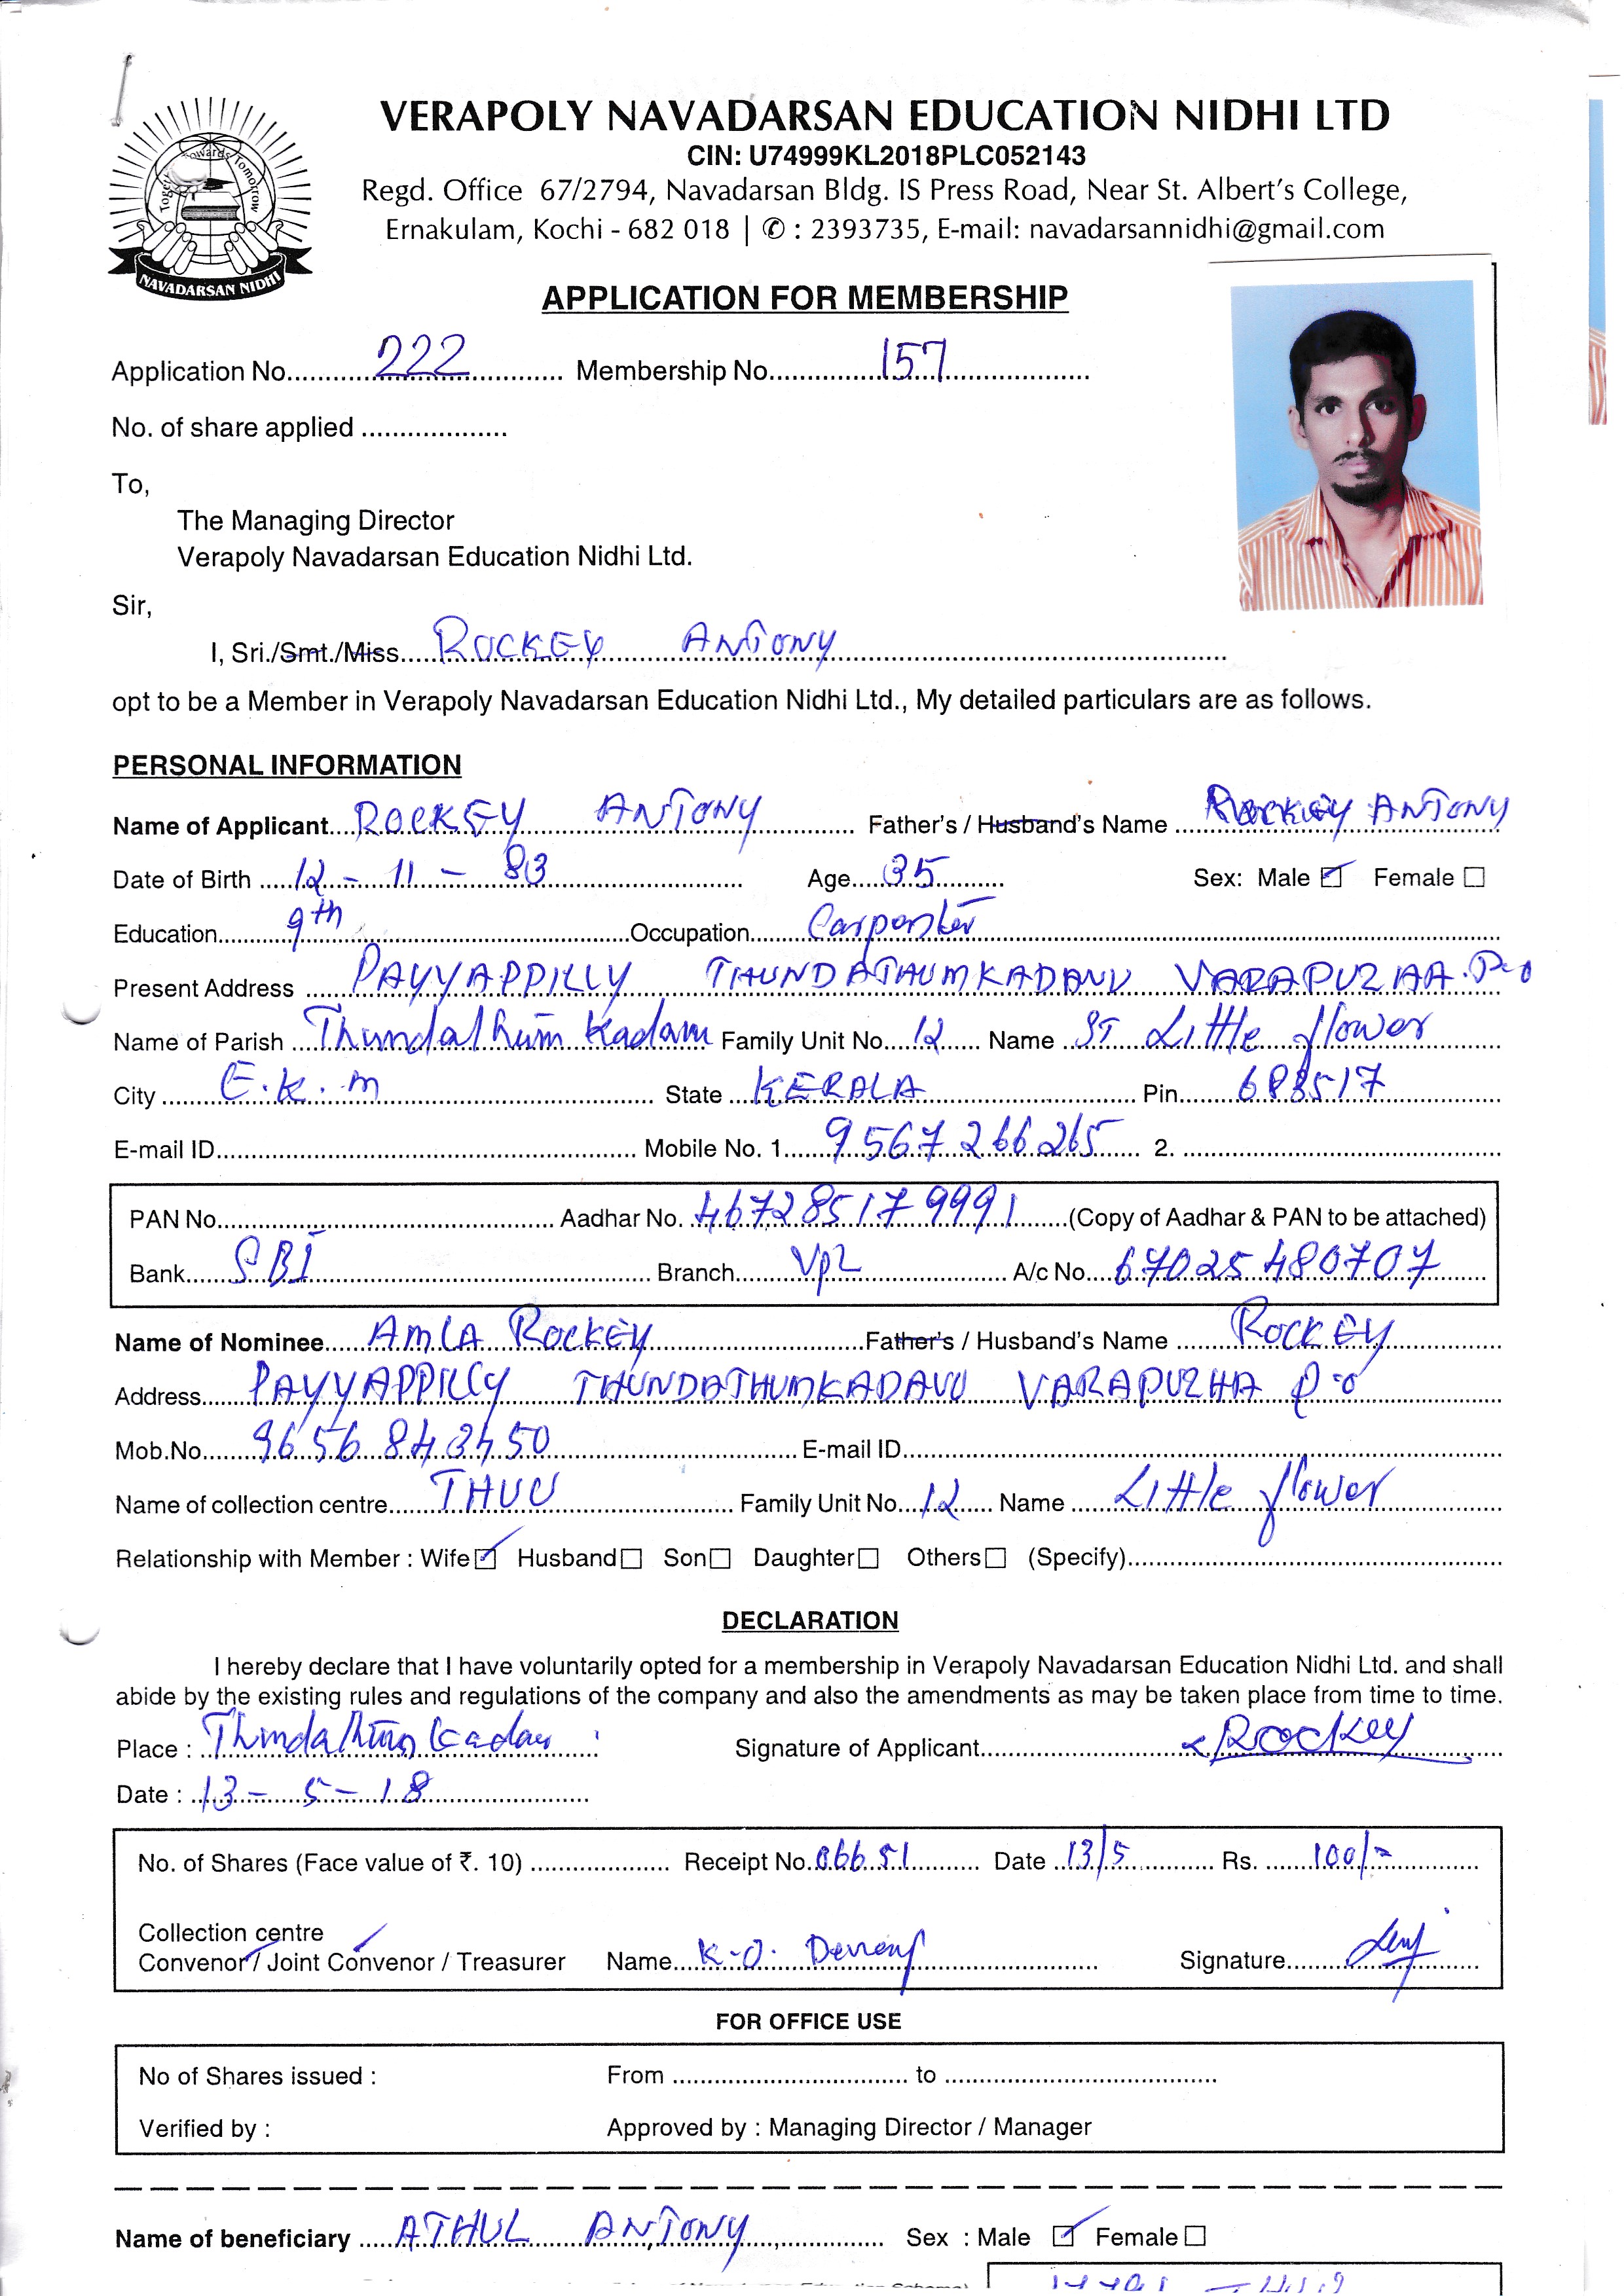 VERAPOLY NAVADARSAN EDUCATION NIDHI LTD
CIN: U74999KL2018PLC052143
Regd. Office 67/2794, Navadarsan Bldg. IS Press Road, Near St. Albert's College,
Ernakulam, Kochi - 682 018 | ✆ : 2393735, E-mail: navadarsannidhi@gmail.com
Together Towards Tomorrow
NAVADARSAN NIDHI
APPLICATION FOR MEMBERSHIP
Application No. 222 Membership No. 157
No. of share applied ....................
To,
The Managing Director
Verapoly Navadarsan Education Nidhi Ltd.
Sir,
I, Sri./Smt./Miss. ROCKEY ANTONY
opt to be a Member in Verapoly Navadarsan Education Nidhi Ltd., My detailed particulars are as follows.
PERSONAL INFORMATION
Name of Applicant ROCKEY ANTONY Father's / Husband's Name ANTONY
Date of Birth 12 - 11 - 83 Age 35 Sex: Male ☑ Female ☐
Education 9th Occupation Carpenter
Present Address PAYYAPPILLY THUNDATHUMKADAVU VARAPUZHA. P-o
Name of Parish Thundathumkadavu Family Unit No. 12 Name ST Little flower
City E.K.m State KERALA Pin 683517
E-mail ID Mobile No. 1 9567266265 2.
PAN No. Aadhar No. 467285179991 (Copy of Aadhar & PAN to be attached)
Bank SBI Branch Vpz A/c No. 67025480707
Name of Nominee AMLA ROCKEY Father's / Husband's Name ROCKEY
Address PAYYAPPILLY THUNDATHUMKADAVU VARAPUZHA P-o
Mob.No. 9656843450 E-mail ID
Name of collection centre Family Unit No. 12 Name Little flower
Relationship with Member : Wife ☑ Husband ☐ Son ☐ Daughter ☐ Others ☐ (Specify)
DECLARATION
I hereby declare that I have voluntarily opted for a membership in Verapoly Navadarsan Education Nidhi Ltd. and shall
abide by the existing rules and regulations of the company and also the amendments as may be taken place from time to time.
Place : Signature of Applicant Rockey
Date : 13 - 5 - 18
No. of Shares (Face value of ₹. 10) Receipt No. 06651 Date 13/5 Rs. 100/-
Collection centre
Convenor / Joint Convenor / Treasurer Name K.O. Denny Signature
FOR OFFICE USE
No of Shares issued : From to
Verified by : Approved by : Managing Director / Manager
Name of beneficiary ATHUL ANTONY Sex : Male ☑ Female ☐